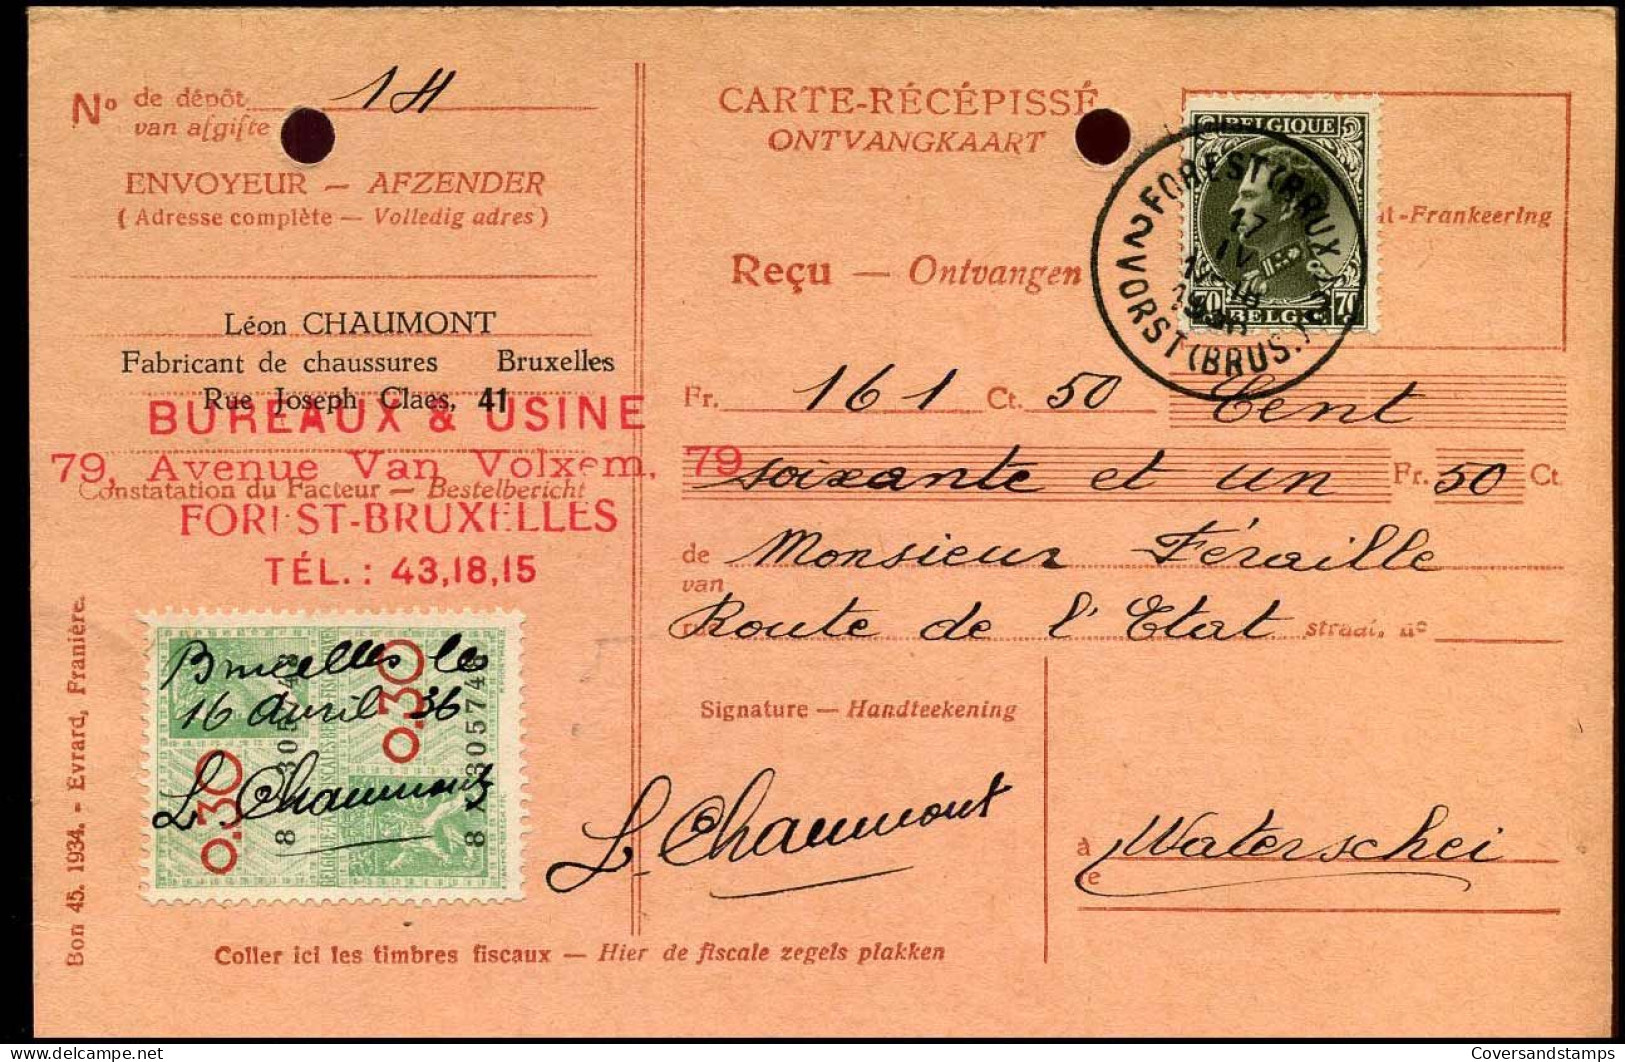 No de dépôt 14
van afgifte
ENVOYEUR — AFZENDER
( Adresse complète — Volledig adres )
Léon CHAUMONT
Fabricant de chaussures Bruxelles
Rue Joseph Claes, 41
BUREAUX & USINE
79, Avenue Van Volxem, 79
Constatation du Facteur — Bestelbericht
FOREST-BRUXELLES
TÉL. : 43,18,15
Bruxelles le
16 avril 36
L. Chaumont
0.30
0.30
Bon 45. 1934. - Evrard, Franière.
Coller ici les timbres fiscaux — Hier de fiscale zegels plakken
CARTE-RÉCÉPISSÉ
ONTVANGKAART
Reçu — Ontvangen
-Frankeering
BELGIQUE
70 70
BELGIE
FOREST (BRUX.) 2
17
IV
18
1936
2 VORST (BRUS.)
Fr. 161 Ct. 50 Cent
soixante et un Fr. 50 Ct
de Monsieur Féraille
van
Route de l'Etat straat, no
Signature — Handteekening
L. Chaumont
à Waterschei
te
Coversandstamps